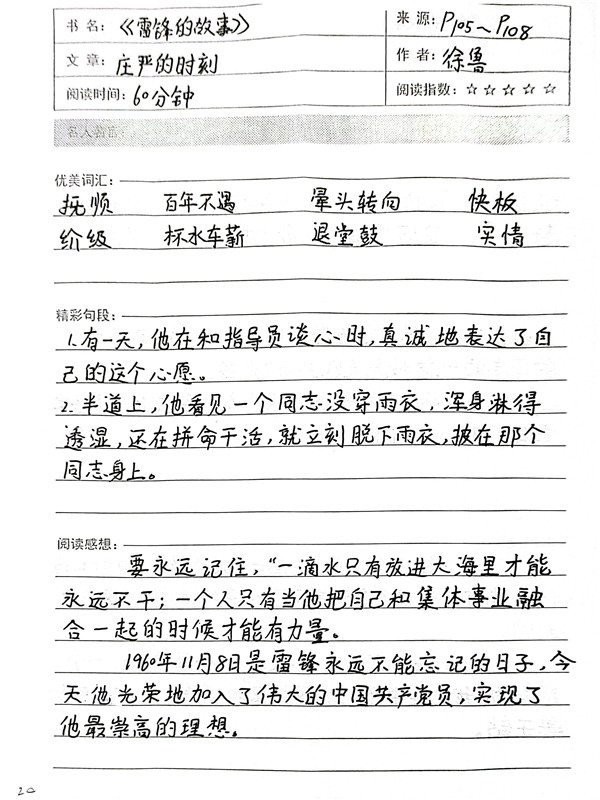 书 名：《雷锋的故事》
来 源：P105～P108
文 章：庄严的时刻
作 者：徐鲁
阅读时间：60分钟
阅读指数：☆ ☆ ☆ ☆ ☆
优美词汇：
抚顺 百年不遇 晕头转向 快板
阶级 杯水车薪 退堂鼓 实情
精彩句段：
1.有一天，他在和指导员谈心时，真诚地表达了自
己的这个心愿。
2.半道上，他看见一个同志没穿雨衣，浑身淋得
透湿，还在拼命干活，就立刻脱下雨衣，披在那个
同志身上。
阅读感想：
要永远记住，“一滴水只有放进大海里才能
永远不干；一个人只有当他把自己和集体事业融
合一起的时候才能有力量。
1960年11月8日是雷锋永远不能忘记的日子，今
天他光荣地加入了伟大的中国共产党员，实现了
他最崇高的理想。
20